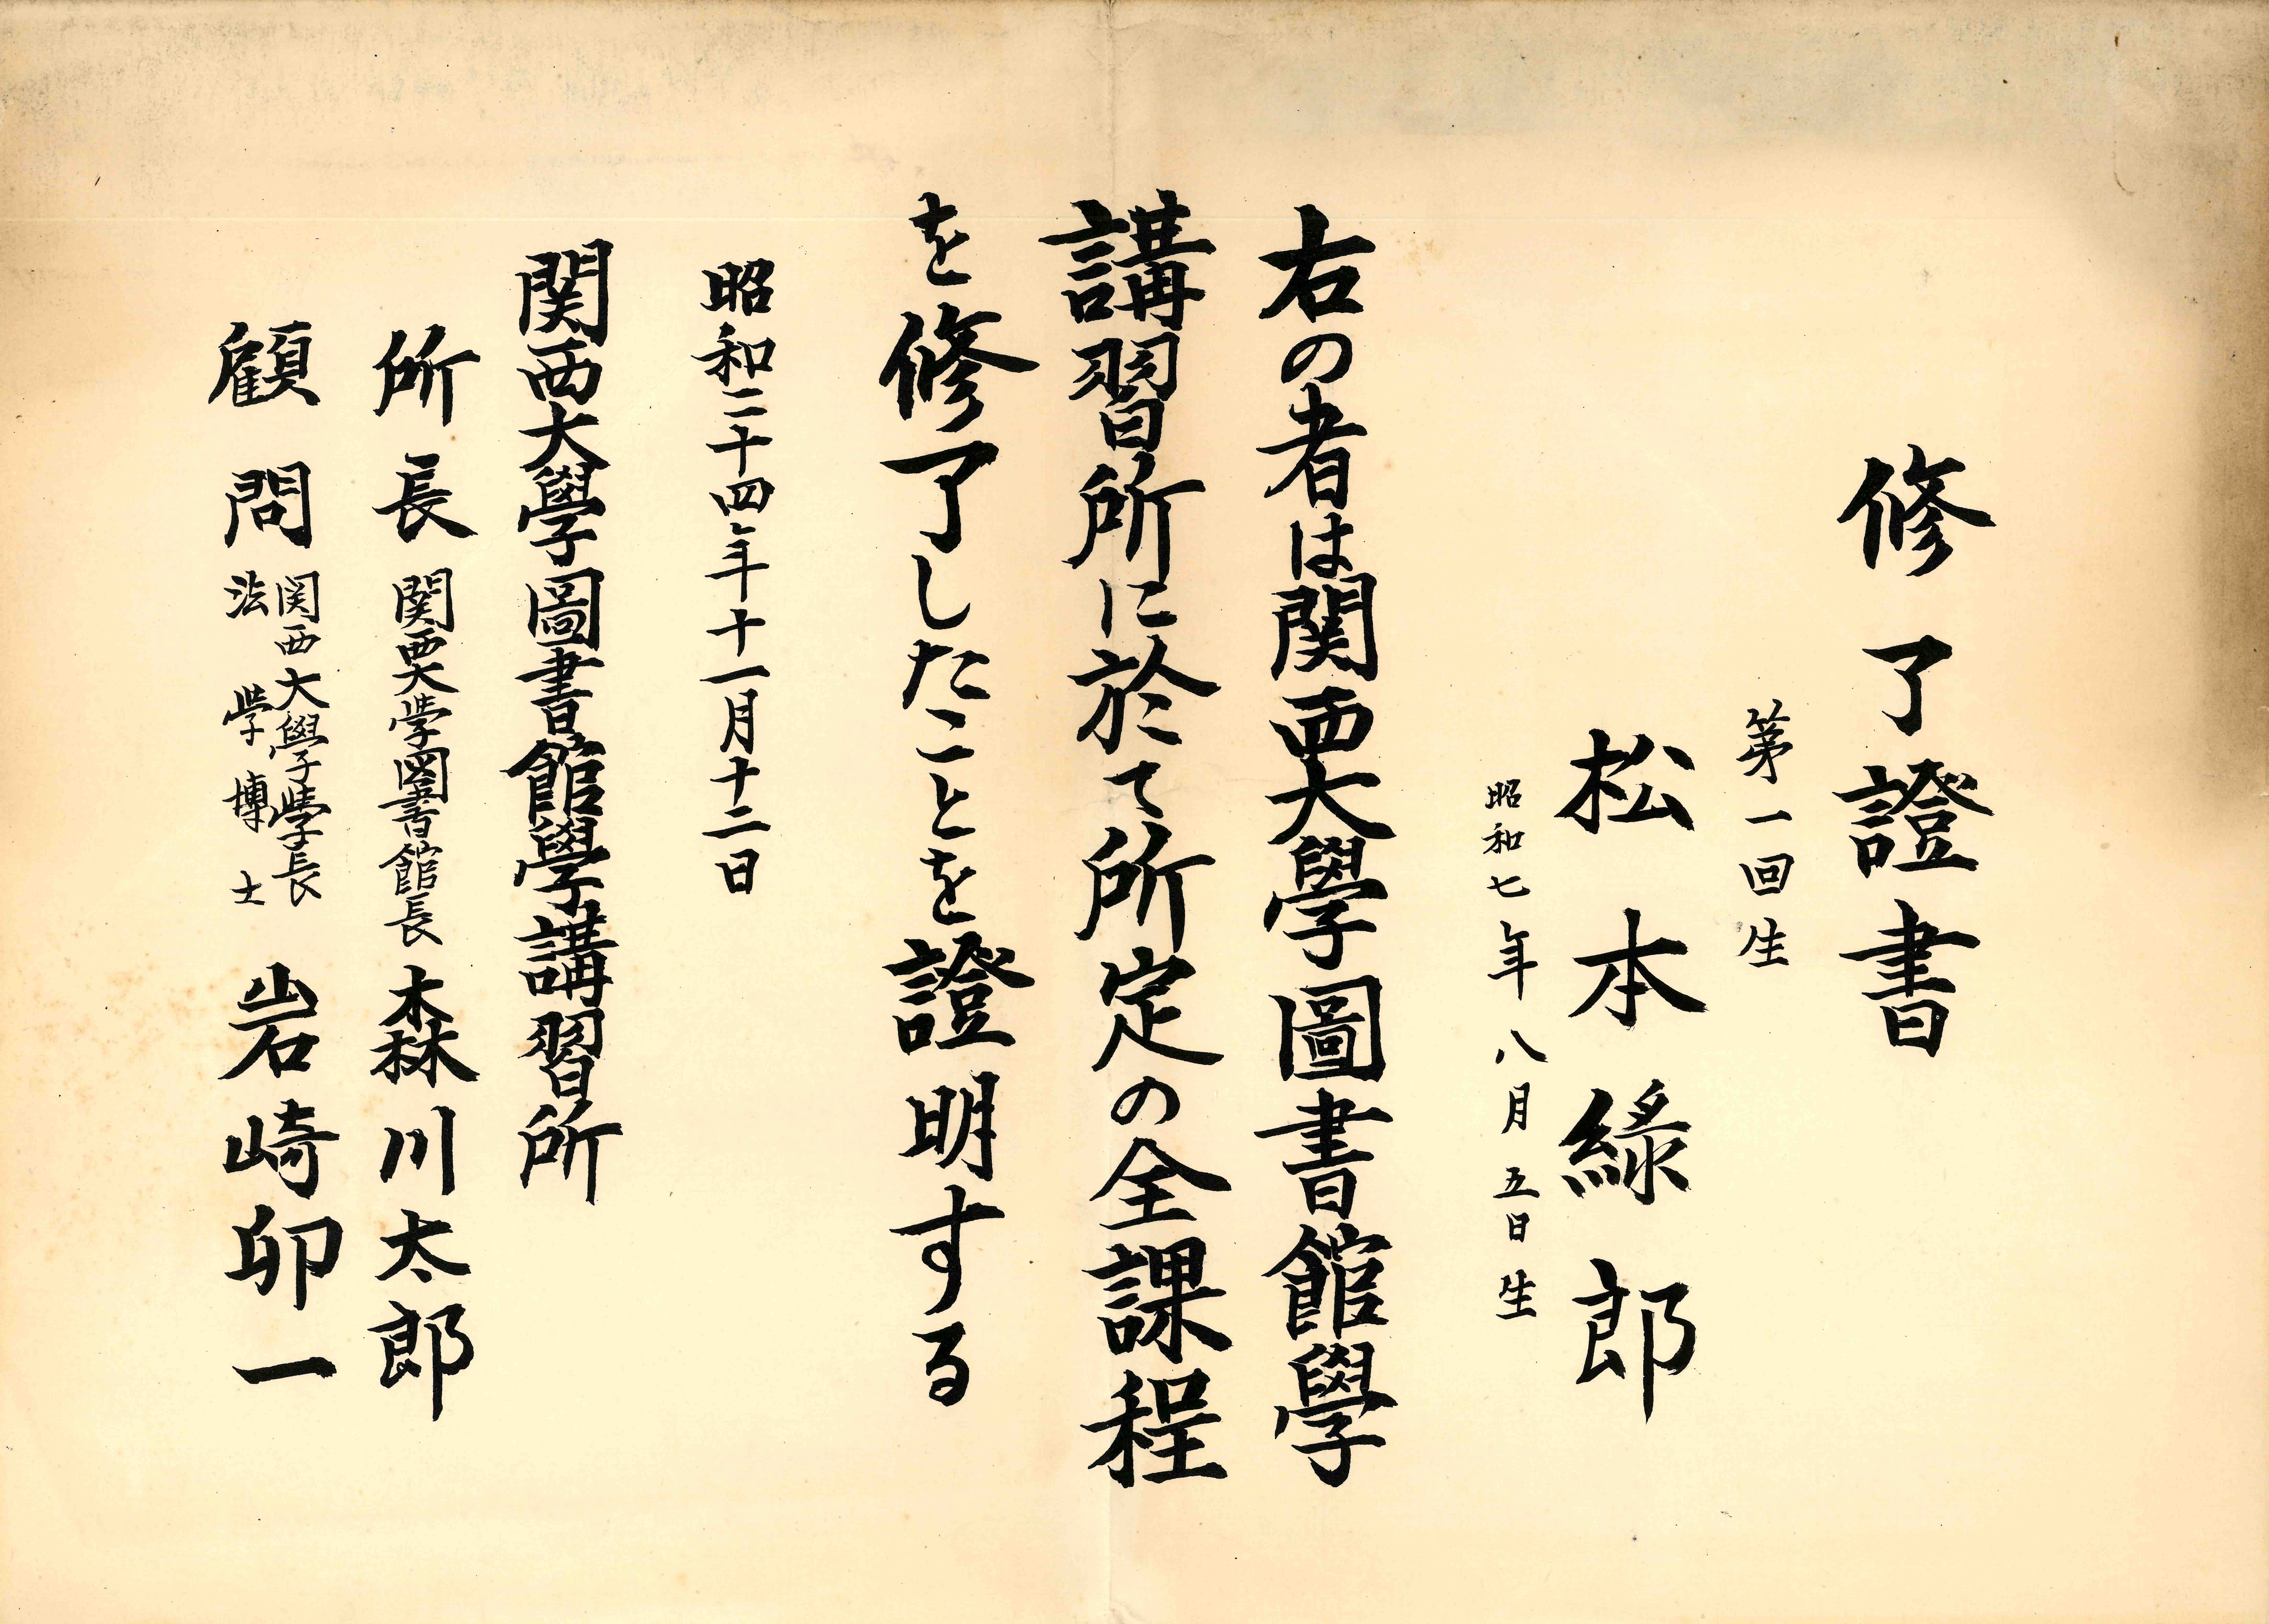 修了證書
第一回生
松本綠郎
昭和七年八月五日生
右の者は関西大學圖書館學
講習所に於て所定の全課程
を修了したことを證明する
昭和二十四年十一月十二日
関西大學圖書館學講習所
所長 関西大学圖書館長 森川太郎
顧問 関西大學学長 法学博士 岩崎卯一